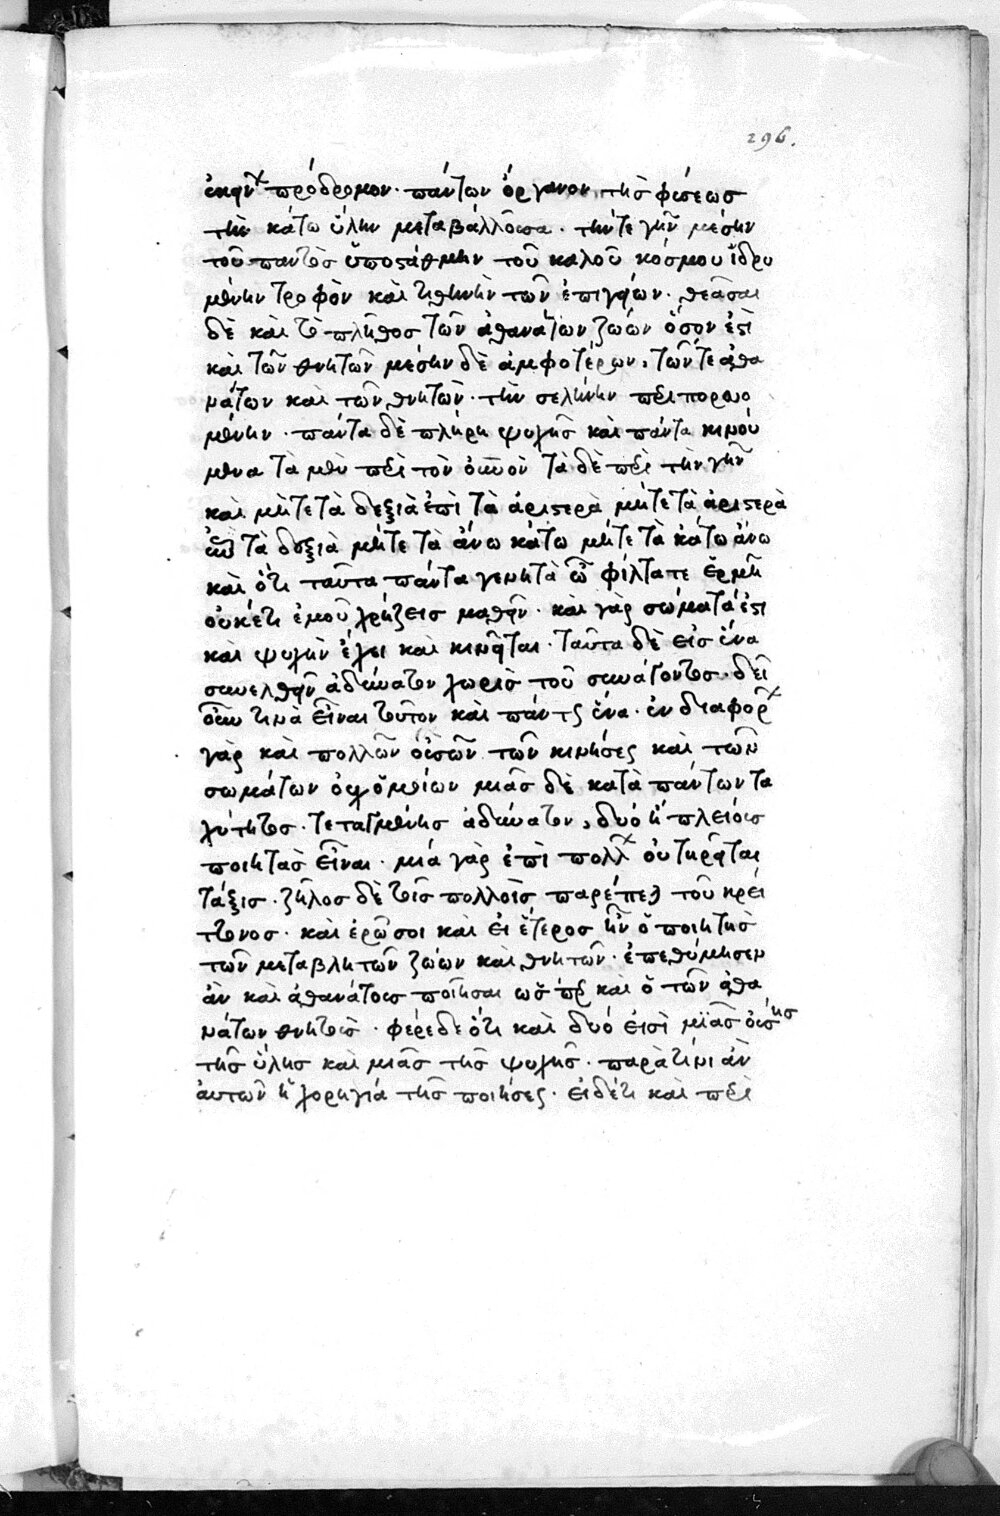 296.
ἐκείνων πρόδρομον· πάντων ὄργανον τῆς φύσεως
τὴν κάτω ὕλην μεταβάλλουσα· τήν τε γῆν μέσην
τοῦ παντὸς ὑποστάθμην τοῦ καλοῦ κόσμου ἱδρυ
μένην τροφὸν καὶ τιθηνὴν τῶν ἐπιγείων· θέασαι
δὲ καὶ τὸ πλῆθος τῶν ἀθανάτων ζώων ὅσον ἐστὶ
καὶ τῶν θνητῶν μέσην δὲ ἀμφοτέρων, τῶν τε ἀθα
νάτων καὶ τῶν θνητῶν· τὴν σελήνην περιπορευο
μένην· πάντα δὲ πλήρη ψυχῆς καὶ πάντα κινού
μενα τὰ μὲν περὶ τὸν οὐρανὸν τὰ δὲ περὶ τὴν γῆν
καὶ μήτε τὰ δεξιὰ ἐπὶ τὰ ἀριστερὰ μήτε τὰ ἀριστερὰ
ἐπὶ τὰ δεξιὰ μήτε τὰ ἄνω κάτω μήτε τὰ κάτω ἄνω
καὶ ὅτι ταῦτα πάντα γενητὰ ὦ φίλτατε ἑρμῆ
οὐκέτι ἐμοῦ χρήζεις μαθεῖν· καὶ γὰρ σώματά ἐστι
καὶ ψυχὴν ἔχει καὶ κινεῖται· ταῦτα δὲ εἰς ἕνα
συνελθεῖν ἀδύνατον χωρὶς τοῦ συνάγοντος· δεῖ
οὖν τινὰ εἶναι τοῦτον καὶ πάντως ἕνα· ἐν διαφόρων
γὰρ καὶ πολλῶν οὐσῶν τῶν κινήσεων καὶ τῶν
σωμάτων οὐχ ὁμοίων μιᾶς δὲ κατὰ πάντων τα
χύτητος· τεταγμένης ἀδύνατον, δυό ἢ πλείους
ποιητὰς εἶναι· μιά γὰρ ἐπὶ πολλῶν οὐ τηρεῖται
τάξις· ζῆλος δὲ τοῖς πολλοῖς παρέπεται τοῦ κρεί
τονος· καὶ ἐρῶ σοι καὶ εἰ ἕτερος ἦν ὁ ποιητὴς
τῶν μεταβλητῶν ζώων καὶ θνητῶν· ἐπεθύμησεν
ἂν καὶ ἀθανάτους ποιῆσαι ὥσπερ καὶ ὁ τῶν ἀθα
νάτων θνητοὺς· φέρε δε ὅτι καὶ δυό εἰσὶ μιᾶς οὔσης
τῆς ὕλης καὶ μιᾶς τῆς ψυχῆς· παρὰ τίνι ἂν
αυτῶν ἡ χορηγιά τῆς ποιήσεως· εἰ δέτι καὶ περὶ